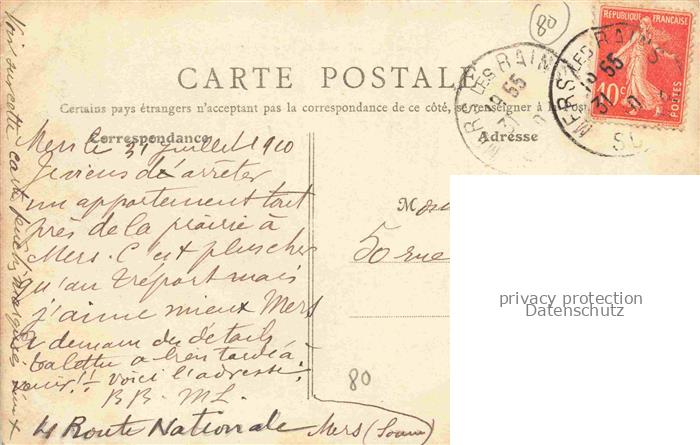 80
RÉPUBLIQUE FRANÇAISE
10c
POSTES
MERS LES BAINS
18 55
31
MERS LES BAINS
18 55
31
CARTE POSTALE
Certains pays étrangers n'acceptant pas la correspondance de ce côté, se renseigner à la Poste
Correspondance
Adresse
Mers le 31 juillet 1910
Je viens d'arrêter
un appartement tout
près de la prairie à
Mers. C'est plus cher
qu'au Tréport mais
j'aime mieux Mers
à demain du détails
ta lettre a bien tardé à
venir!! Voici l'adresse
BB. ML.
4 Route Nationale Mers (Somme)
M
50 rue
80
Voir sur cette carte
privacy protection
Datenschutz